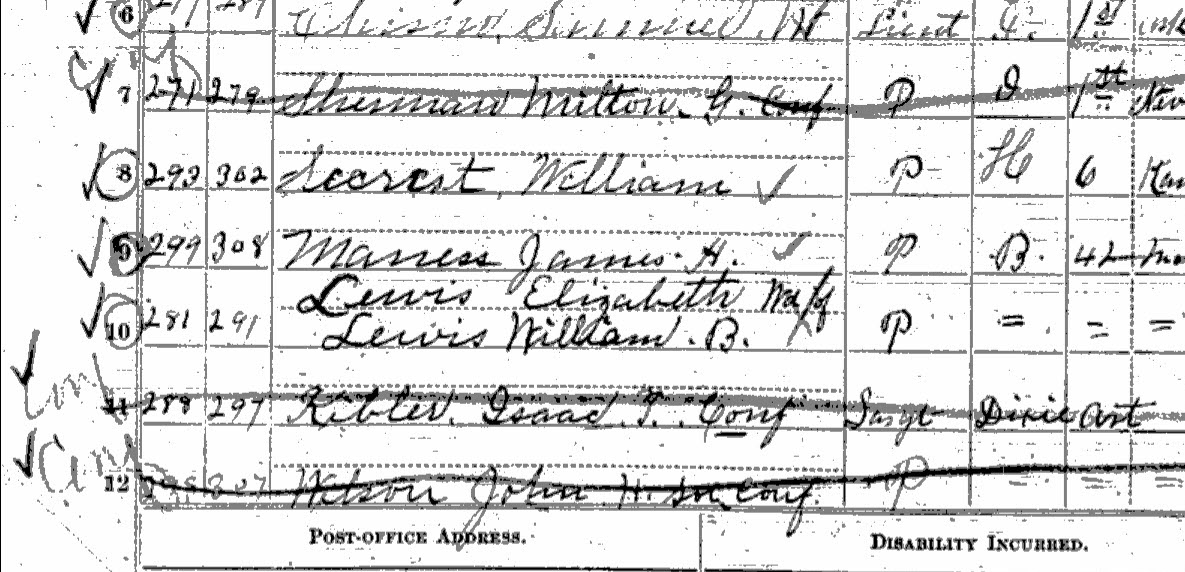 6 Samuel H Lieut 1st
7 271 279 Sherman Milton. G. Conf P I 1st
8 293 302 Secrest, William P H 6 Kan
9 299 308 Maness James. H. P B. 42
Lewis Elizabeth Wd/of
10 281 291 Lewis William. B. P = = =
Conf
11 288 297 Kibler. Isaac T. Conf Sargt Dixie Art
12 307 John H. Conf. P = =
POST-OFFICE ADDRESS.
DISABILITY INCURRED.